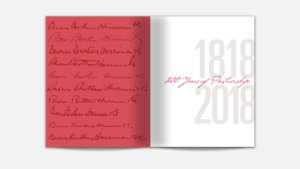 Brown Brothers Harriman & Co
Brown Brothers Harriman & Co
Brown Brothers Harriman & Co
Brown Brothers Harriman & Co
Brown Brothers Harriman & Co
Brown Brothers Harriman
Brown Brothers Harriman & Co
Brown Brothers Harriman & Co
Brown Brothers Harriman & Co
Brown Brothers Harriman & Co
Brown Brothers Harriman & Co
1818
200 Years of Partnership
2018